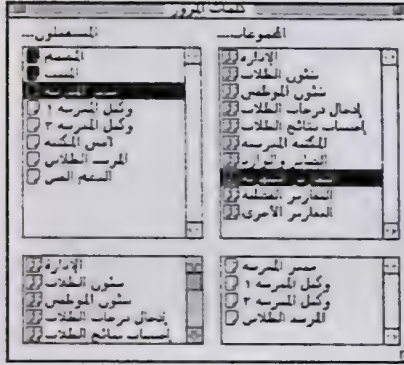 كلمات المرور
المجموعات...
الإدارة
شئون الطلاب
شئون الموظفين
إدخال درجات الطلاب
إحتساب نتائج الطلاب
المكتبه المدرسيه
الصادر والوارد
التقارير المختلفه
التقارير الأخرى
المستعملون...
المصمم
مدير المدرسه
وكيل المدرسه ١
وكيل المدرسه ٢
أمين المكتبه
المرشد الطلابي
الدعم الفني
مدير المدرسه
وكيل المدرسه ١
وكيل المدرسه ٢
المرشد الطلابي
الإدارة
شئون الطلاب
شئون الموظفين
إدخال درجات الطلاب
إحتساب نتائج الطلاب